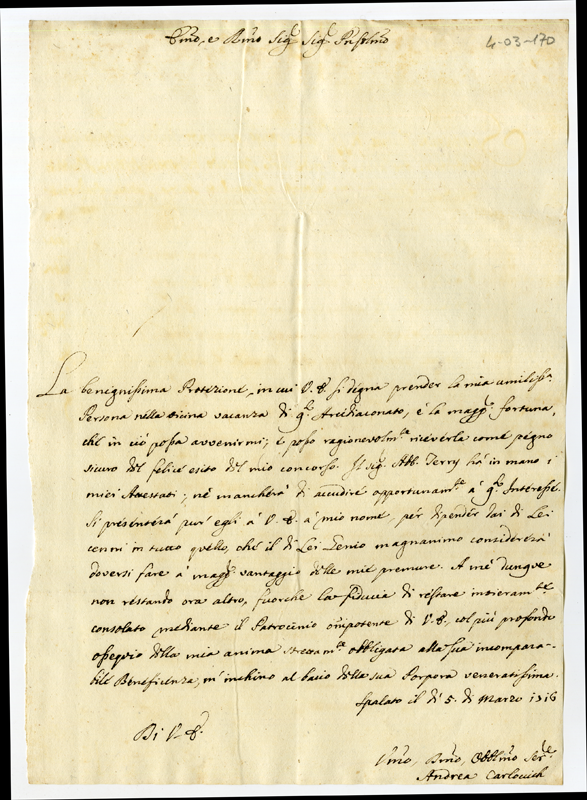 Em̃o, e Rm̃o Sig.r Sig.r Prõn Colm̃o
4-03-170
La benignissima Protezione, in cui V. E. si degna prender la mia umiliss.a
Persona nella vicina vacanza di q.to Arcidiaconato, è la magg.r fortuna,
che in ciò possa avvenirmi; e posso ragionevolm.te riceverla come pegno
sicuro del felice esito del mio concorso. Il Sig.r Abb. Terry hà in mano i
miei Attestati; nè mancherà di accudire opportunam.te à q.to Interesse.
Si presenterà pur' egli à V. E. à mio nome, per dipender dai di Lei
cenni in tutto quello, che il di Lei Genio magnanimo considererà
doversi fare à magg.r vantaggio delle mie premure. A mè dunque
non restando ora altro, fuorche la fiducia di restare intieram.te
consolato mediante il Patrocinio om̃ipotente di V. E., col più profondo
ossequio della mia anima strettam.te obbligata alla sua incompara-
bile Beneficienza, m'inchino al bacio della sua Porpora veneratissima.
Spalato il dì 5. di Marzo 1716
Di V. E.
Um̃o, Dm̃o, Obblm̃o Ser.e
Andrea Carlovich